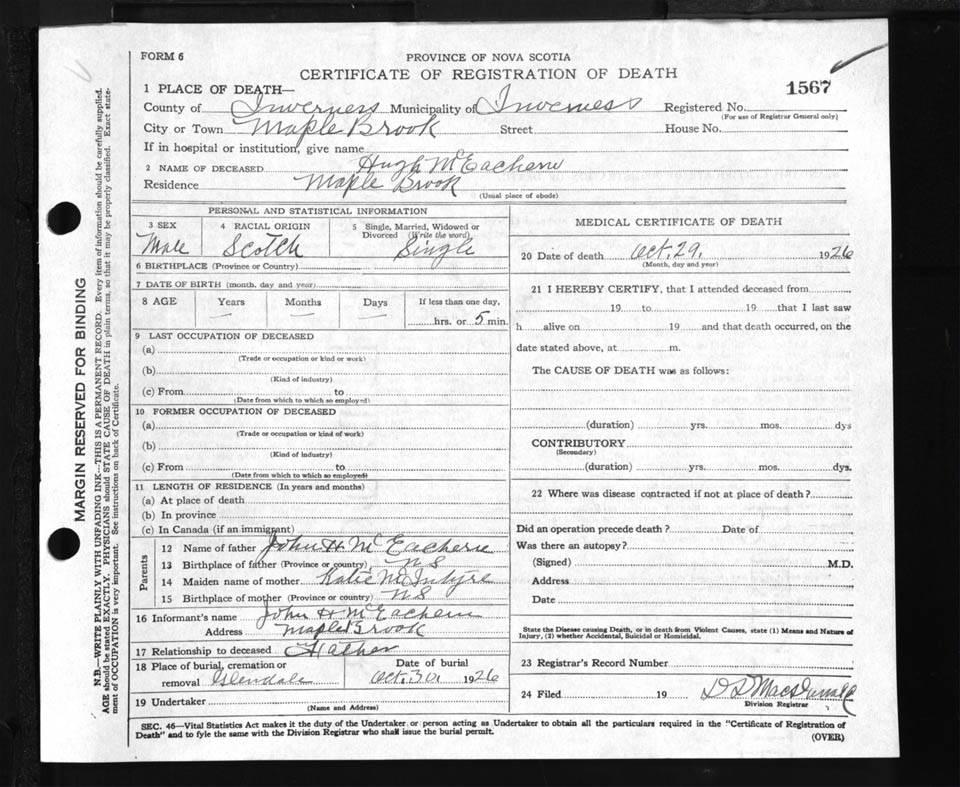 FORM 6
PROVINCE OF NOVA SCOTIA
CERTIFICATE OF REGISTRATION OF DEATH
1567
1 PLACE OF DEATH—
County of Inverness Municipality of Inverness Registered No.
(For use of Registrar General only)
City or Town Maple Brook Street House No.
If in hospital or institution, give name
2 NAME OF DECEASED Hugh McEachern
Residence Maple Brook
(Usual place of abode)
PERSONAL AND STATISTICAL INFORMATION
3 SEX 4 RACIAL ORIGIN 5 Single, Married, Widowed or Divorced (Write the word)
Male Scotch Single
6 BIRTHPLACE (Province or Country)
7 DATE OF BIRTH (month, day and year)
8 AGE Years Months Days If less than one day,
— — — hrs. or 5 min.
9 LAST OCCUPATION OF DECEASED
(a)
(Trade or occupation or kind or work)
(b)
(Kind of industry)
(c) From to
(Date from which to which so employed)
10 FORMER OCCUPATION OF DECEASED
(a)
(Trade or occupation or kind of work)
(b)
(Kind of industry)
(c) From to
(Date from which to which so employed)
11 LENGTH OF RESIDENCE (In years and months)
(a) At place of death
(b) In province
(c) In Canada (if an immigrant)
Parents
12 Name of father John H McEachern
13 Birthplace of father (Province or country) NS
14 Maiden name of mother Katie McIntyre
15 Birthplace of mother (Province or country) NS
16 Informant's name John H McEachern
Address Maple Brook
17 Relationship to deceased Father
18 Place of burial, cremation or removal Glendale Date of burial Oct. 30 1926
19 Undertaker
(Name and Address)
MEDICAL CERTIFICATE OF DEATH
20 Date of death Oct. 29. 1926
(Month, day and year)
21 I HEREBY CERTIFY, that I attended deceased from
19 to 19 that I last saw
h alive on 19 and that death occurred, on the
date stated above, at m.
The CAUSE OF DEATH was as follows:
(duration) yrs. mos. dys
CONTRIBUTORY
(Secondary)
(duration) yrs. mos. dys.
22 Where was disease contracted if not at place of death?
Did an operation precede death? Date of
Was there an autopsy?
(Signed) M.D.
Address
Date
State the Disease causing Death, or in death from Violent Causes, state (1) Means and Nature of
Injury, (2) whether Accidental, Suicidal or Homicidal.
23 Registrar's Record Number
24 Filed 19 D D MacDonald
Division Registrar
SEC. 46—Vital Statistics Act makes it the duty of the Undertaker or person acting as Undertaker to obtain all the particulars required in the "Certificate of Registration of
Death" and to fyle the same with the Division Registrar who shall issue the burial permit.
(OVER)
MARGIN RESERVED FOR BINDING
N.B.—WRITE PLAINLY WITH UNFADING INK—THIS IS A PERMANENT RECORD. Every item of information should be carefully supplied.
AGE should be stated EXACTLY. PHYSICIANS should STATE CAUSE OF DEATH in plain terms, so that it may be properly classified. Exact state-
ment of OCCUPATION is very important. See instructions on back of Certificate.